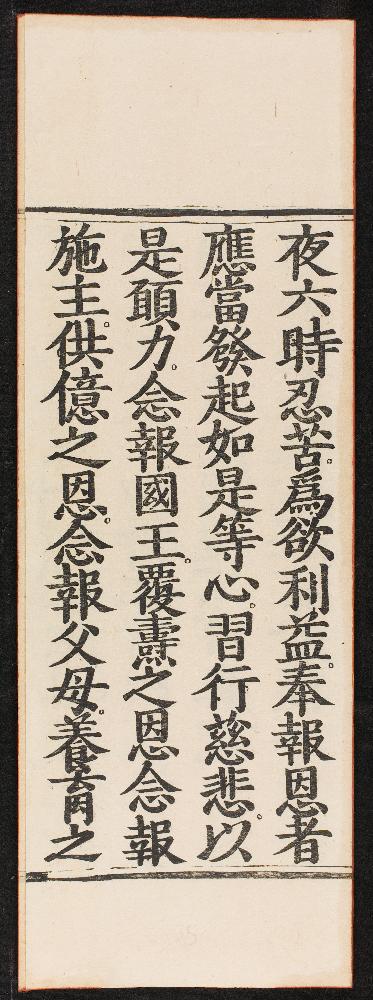 夜六時忍苦。爲欲利益。奉報恩者
應當發起如是等心。習行慈悲。以
是願力。念報國王。覆燾之恩念報
施主。供億之恩。念報父母。養育之